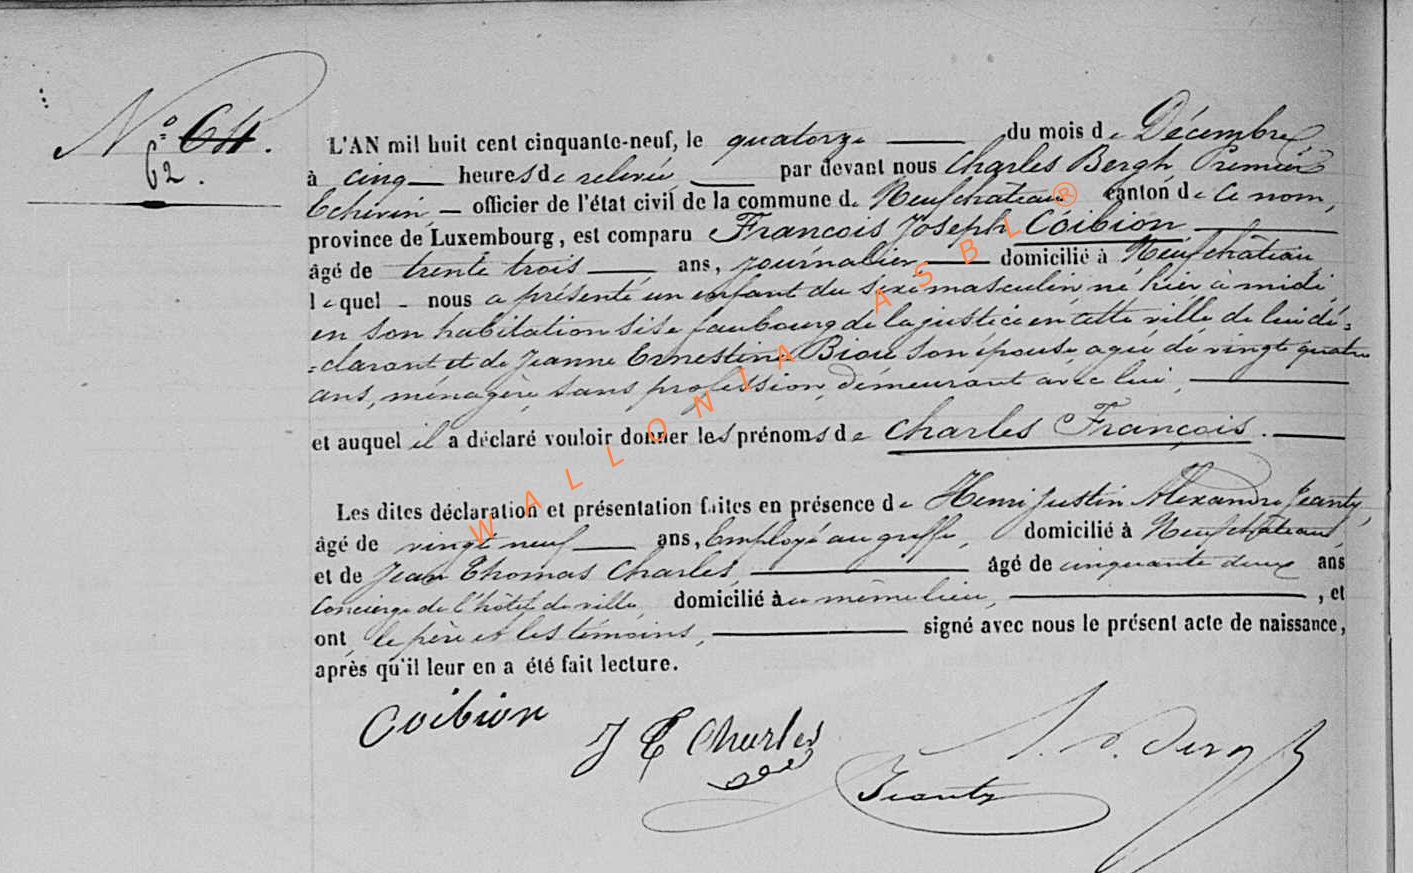 N° 64.
62.
L'AN mil huit cent cinquante-neuf, le quatorze du mois de Décembre
à cinq heures de relevée par devant nous Charles Bergh, Premier
Echevin officier de l'état civil de la commune de Neufchateau canton de ce nom,
province de Luxembourg, est comparu François Joseph Coibion
âgé de trente trois ans, journalier domicilié à Neufchâteau
lequel nous a présenté un enfant du sexe masculin né hier à midi
en son habitation sise faubourg de la justice en cette ville de lui dé=
=clarant et de Jeanne Ernestine Biou son épouse, agée de vingt quatre
ans, ménagère, sans profession, demeurant avec lui,
et auquel il a déclaré vouloir donner les prénoms de Charles François.
Les dites déclaration et présentation faites en présence de Henri Justin Alexandre Jeanty,
âgé de vingt neuf ans, Employé au greffe, domicilié à Neufchateau,
et de Jean Thomas Charles, âgé de cinquante deux ans
Concierge de l'hôtel de ville domicilié au même lieu, , et
ont le père et les témoins, signé avec nous le présent acte de naissance,
après qu'il leur en a été fait lecture.
Coibion
J T Charles
Jeanty
WALLONIA ASBL ®